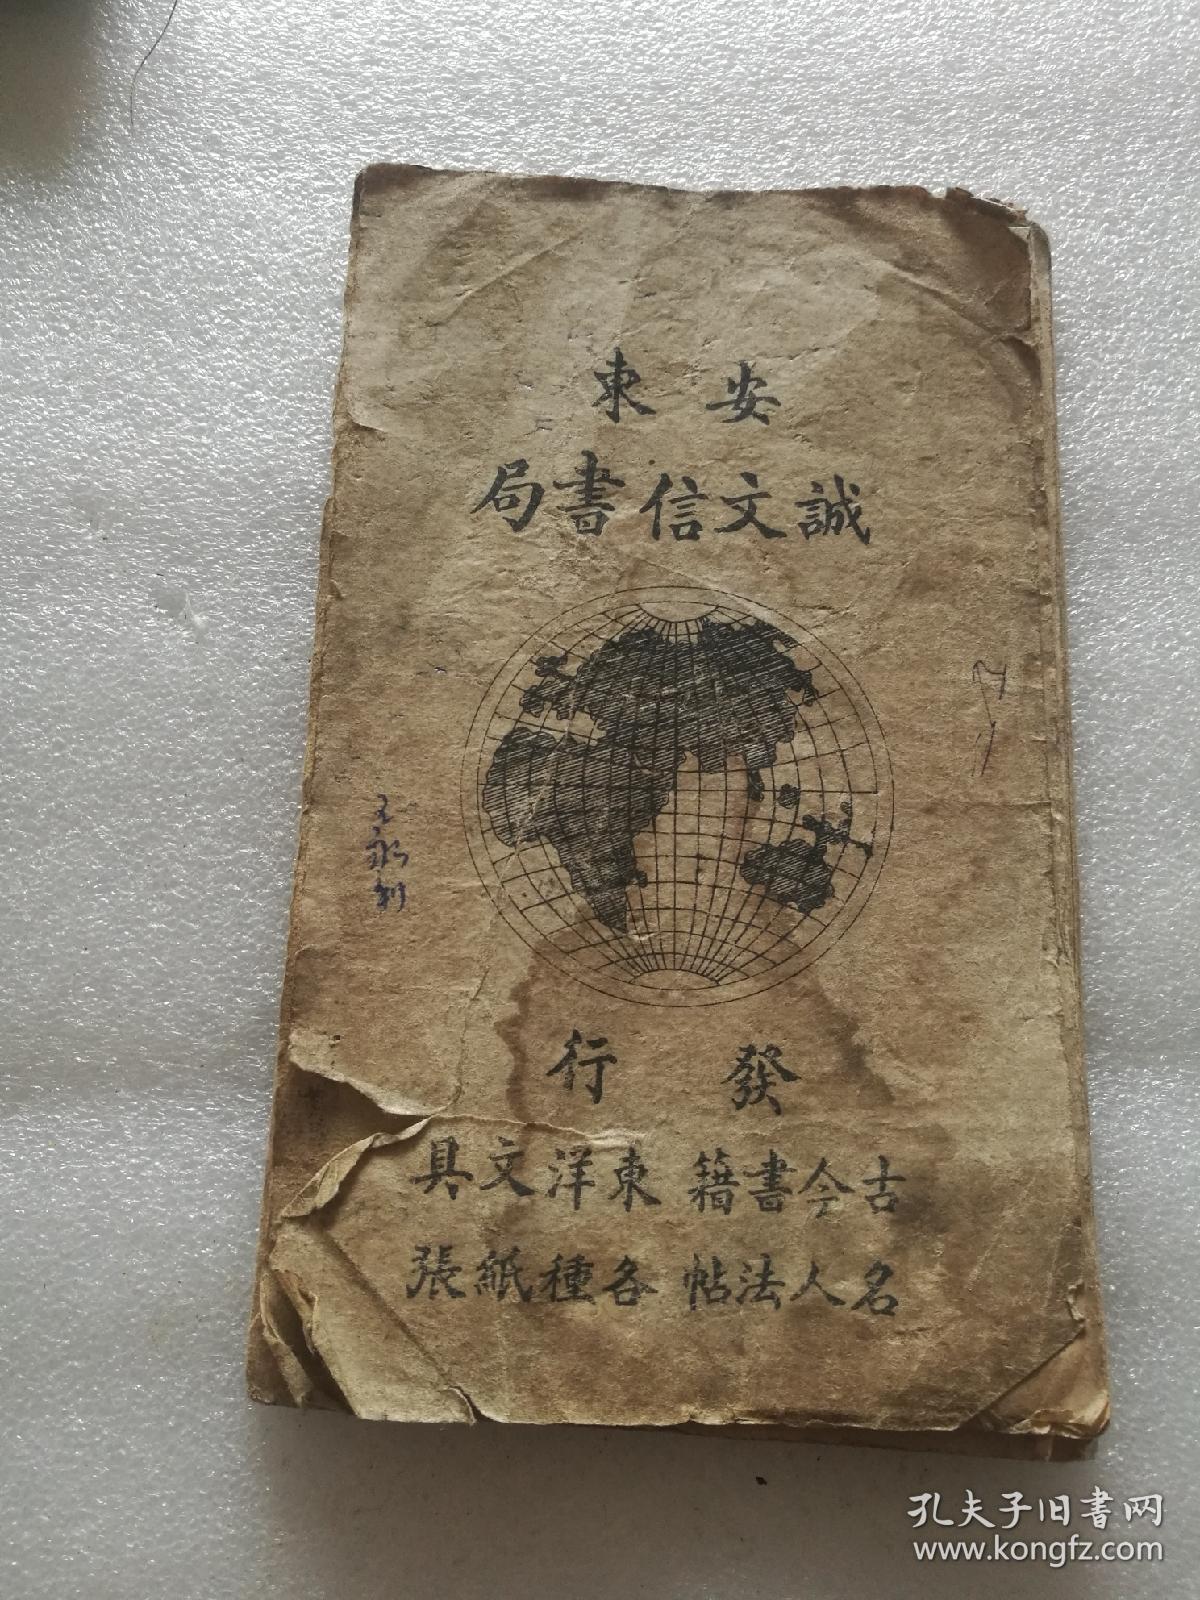 安東
誠文信書局
發行
古今書籍 東洋文具
名人法帖 各種紙張
王永利
孔夫子旧書网
www.kongfz.com